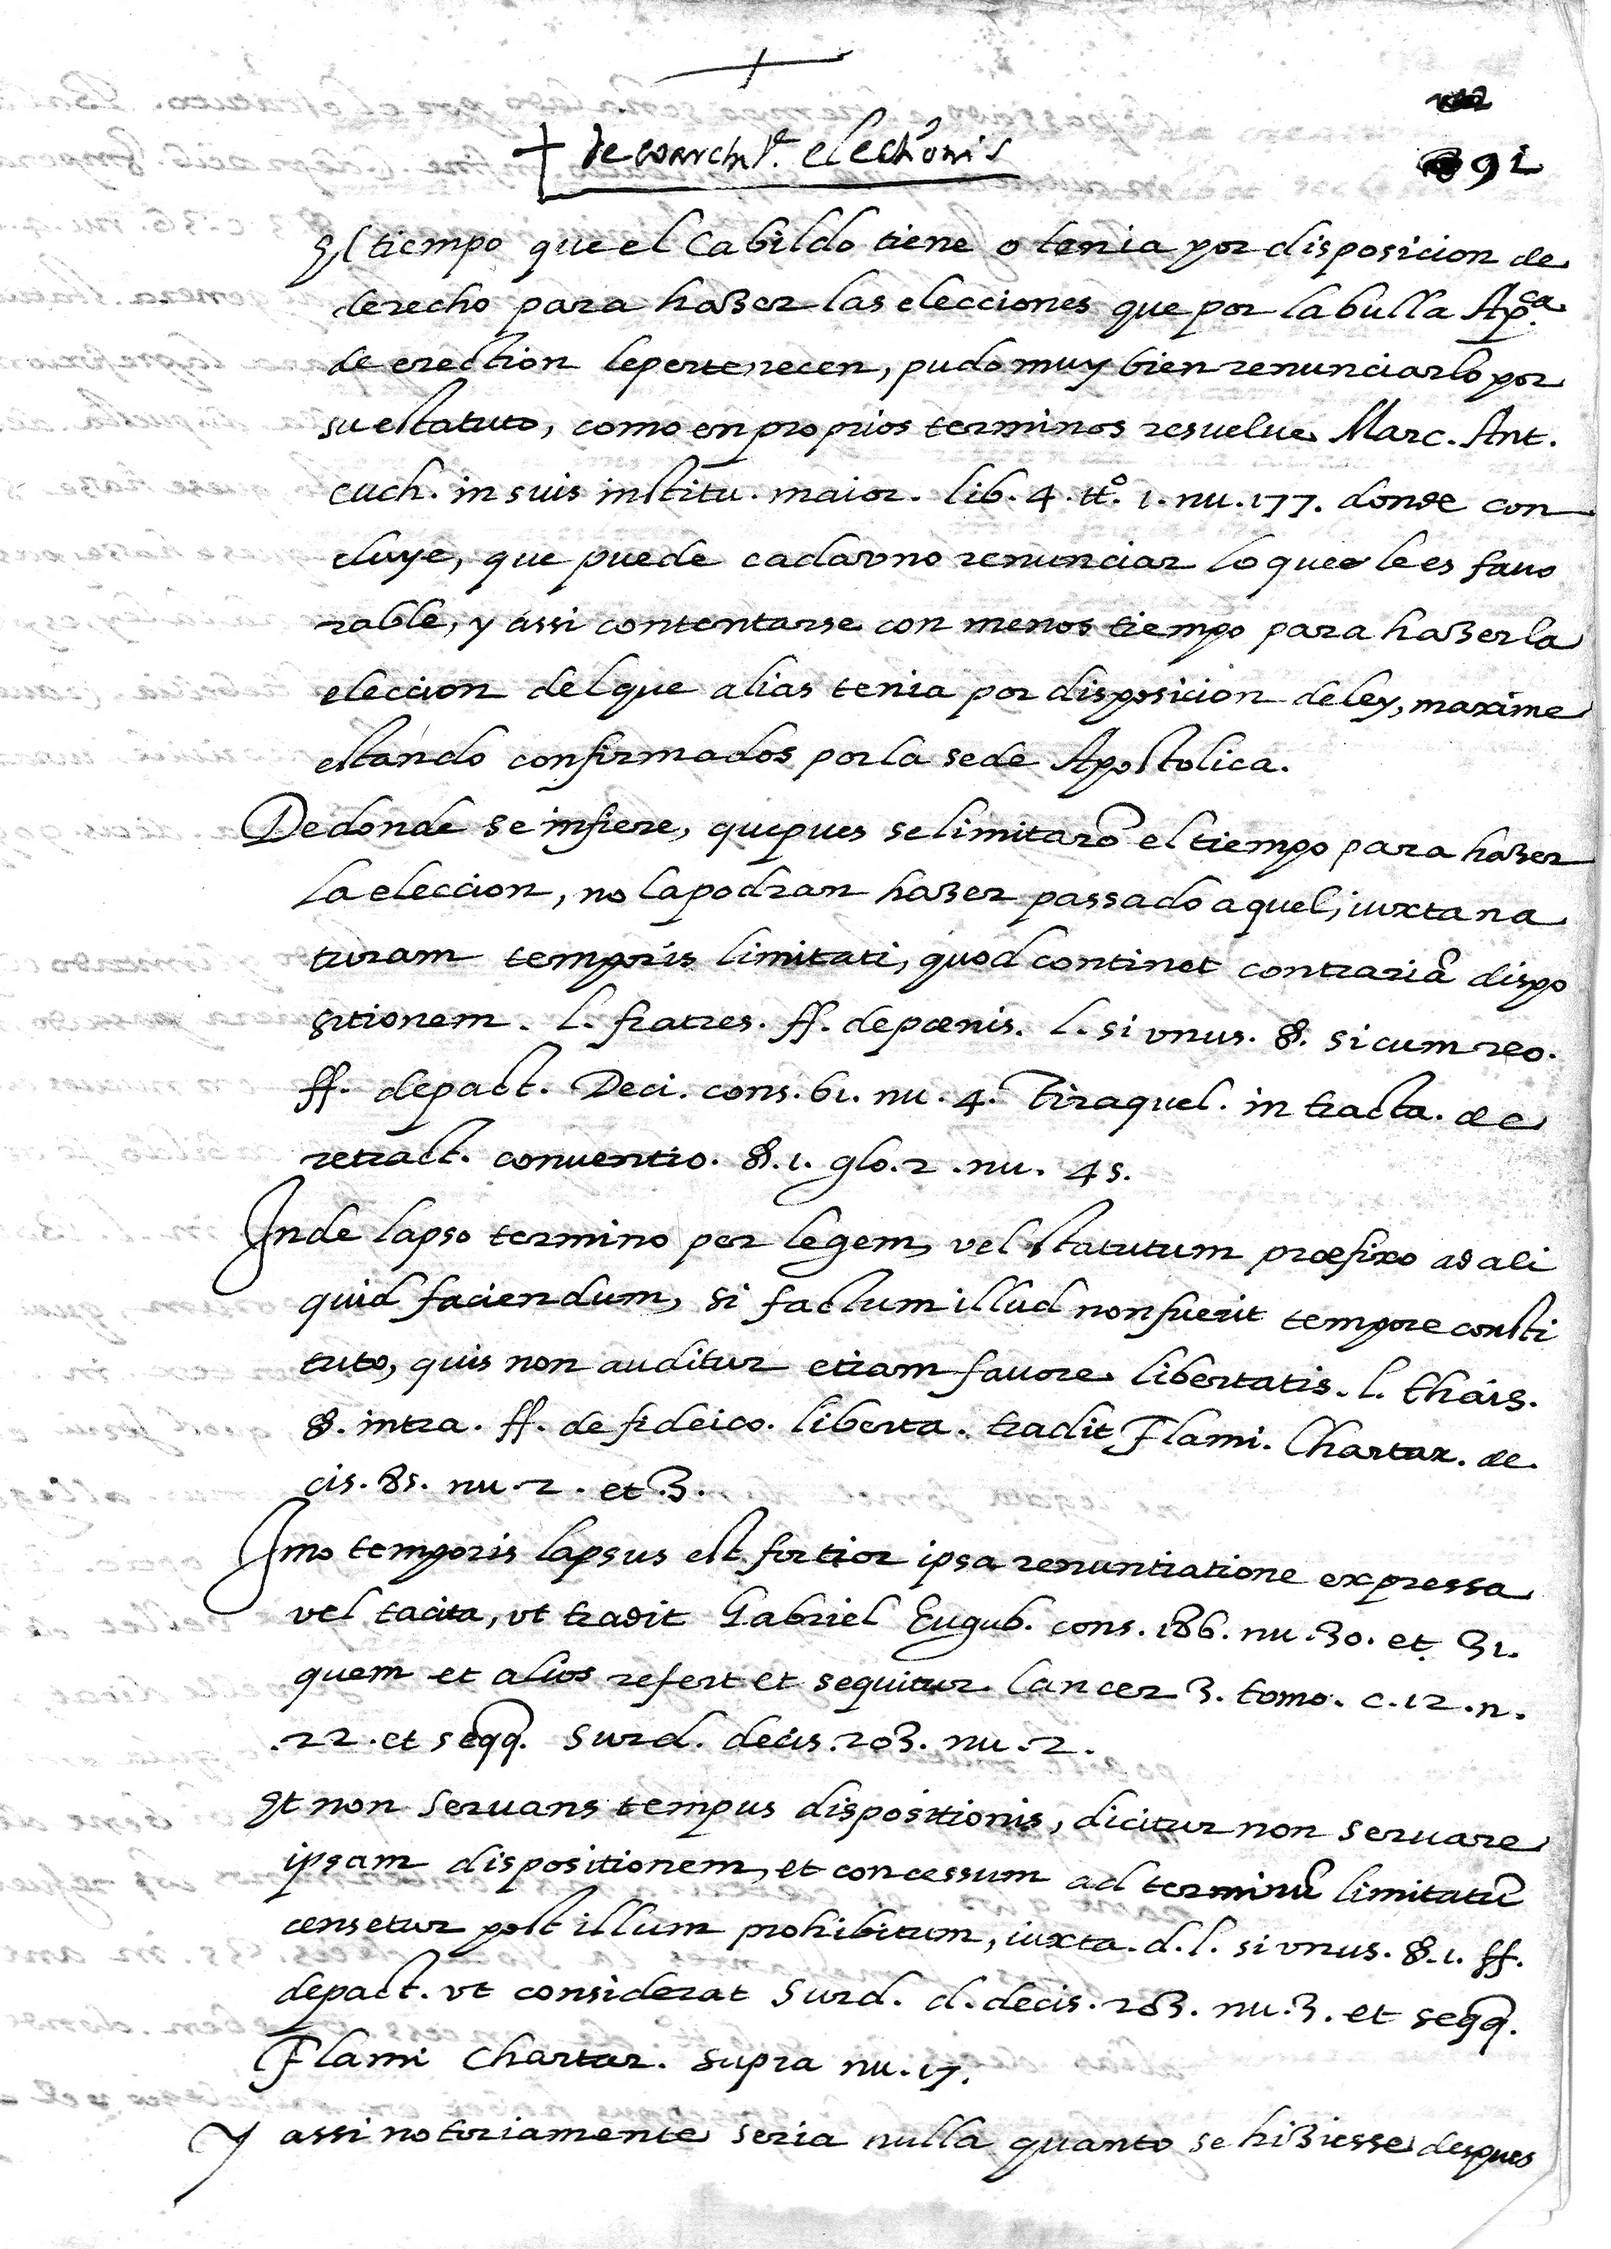 91
electionis
El tiempo que el Cabildo tiene o tenia por disposicion de
derecho para hazer las elecciones que por la bulla Apca.
de erection le pertenecen, pudo muy bien renunciarlo por
su estatuto, como en proprios terminos resuelve Marc. Ant.
cuch. in suis institu. maior. lib. 4. tto. 1. nu. 177. donde con
cluye, que puede cada vno renunciar lo que le es fauo
rable, y assi contentarse con menos tiempo para hazer la
eleccion del que alias tenia por disposicion de ley, maxime
estando confirmados por la sede Apostolica.
De donde se infiere, que pues se limitarō el tiempo para hazer
la eleccion, no la podran hazer passado aquel, iuxta na
turam temporis limitati, quod continet contrariā dispo
sitionem. l. fratres. ff. de pœnis. l. si vnus. §. si cum reo.
ff. de pact. Deci. cons. 61. nu. 4. Tiraquel. in tracta. de
retract. conuentio. §. 1. glo. 2. nu. 45.
Inde lapso termino per legem, vel statutum præfixo ad ali
quid faciendum, si factum illud non fuerit tempore consti
tuto, quis non auditur etiam fauore libertatis. l. thais.
§. intra. ff. de fideico. liberta. tradit Flami. Chartar. de
cis. 85. nu. 2. et 3.
Imo temporis lapsus est fortior ipsa renuntiatione expressa
vel tacita, vt tradit Gabriel Eugub. cons. 186. nu. 30. et 31.
quem et alios refert et sequitur Lancer 3. tomo. c. 12. n.
22. et seqq. Surd. decis. 203. nu. 2.
Et non seruans tempus dispositionis, dicitur non seruare
ipsam dispositionem, et concessum ad terminū limitatū
censetur post illum prohibitum, iuxta. d. l. si vnus. §. 1. ff.
de pact. vt considerat Surd. d. decis. 203. nu. 3. et seqq.
Flami Chartar. supra nu. 17.
Y assi notoriamente seria nulla quanto se hiziesse despues